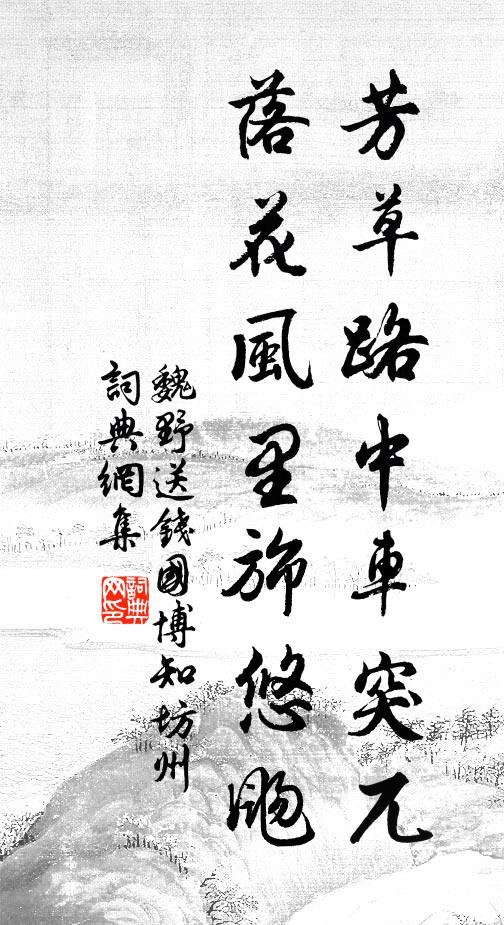 芳草路中車突兀
落花風里斾悠颺
魏野送錢國博知坊州
詞典網集
詞典
网印